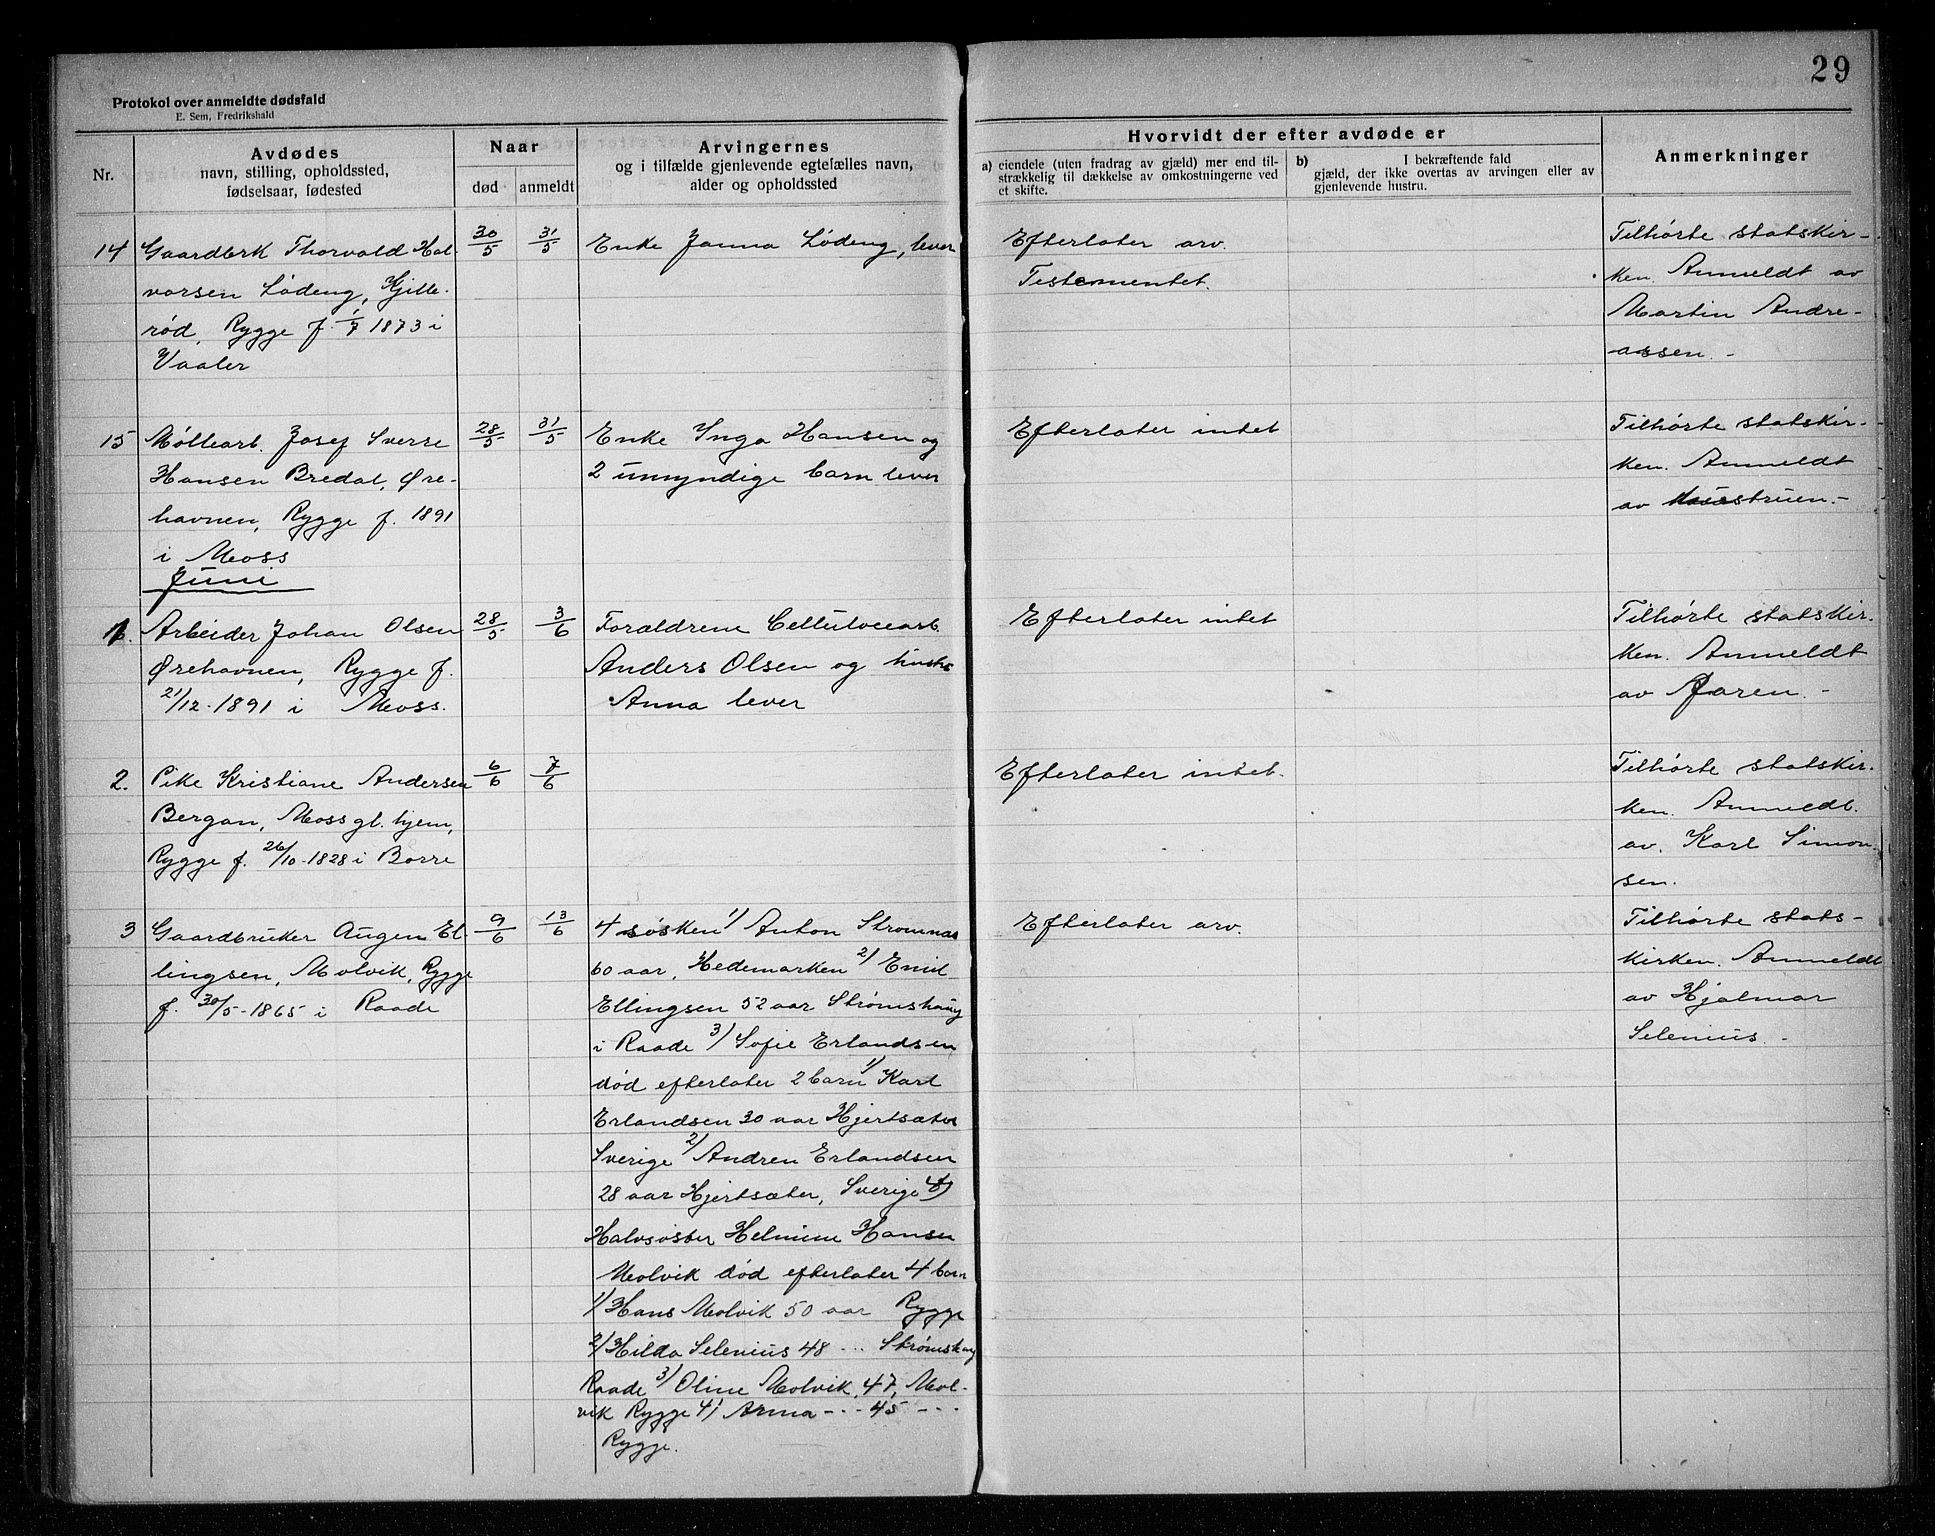 29
Protokol over anmeldte dødsfald
E. Sem, Fredrikshald
Nr.
Avdødes
navn, stilling, opholdssted,
fødselsaar, fødested
Naar
død
anmeldt
Arvingernes
og i tilfælde gjenlevende egtefælles navn,
alder og opholdssted
Hvorvidt der efter avdøde er
a) eiendele (uten fradrag av gjæld) mer end til-
strækkelig til dækkelse av omkostningerne ved
et skifte.
b) I bekræftende fald
gjæld, der ikke overtas av arvingen eller av
gjenlevende hustru.
Anmerkninger
14
Gaardbrk Thorvald Hal-
vorsen Lødeng, Kjille-
rød, Rygge f. 1/7 1873 i
Vaaler
30/5
31/5
Enke Janna Lødeng, lever
Efterlater arv.
Testementet.
Tilhørte statskir-
ken. Anmeldt av
Martin Andre-
assen. -
15
Møllearb. Josef Sverre
Hansen Bredal, Øre-
havnen, Rygge f. 1891
i Moss
28/5
31/5
Enke Inga Hansen og
2 umyndige barn lever
Efterlater intet
Tilhørte statskir-
ken. Anmeldt
av Haustruen. -
Juni
1.
Arbeider Johan Olsen
Ørehavnen, Rygge f.
21/12-1891 i Moss.
28/5
3/6
Forældrene Cellulocearb.
Anders Olsen og hustr
Anna lever
Efterlater intet
Tilhørte statskir-
ken. Anmeldt
av Faren. -
2.
Pike Kristiane Andersen
Bergan, Moss gl. hjem,
Rygge f. 26/10-1828 i Borre
6/6
7/6
Efterlater intet.
Tilhørte statskir-
ken. Anmeldt.
av. Karl Simon-
sen.
3
Gaardbruker Augen El-
lingsen, Molvik, Rygge
f. 30/5-1865 i Raade
9/6
13/6
4 søsken 1/ Anton Strømnæs
60 aar, Hedemarken 2/ Emil
Ellingsen 52 aar Strømshaug
i Raade 3/ Sofie Erlandsen
død efterlater 2 barn 1/ Karl
Erlandsen 30 aar Hjertsæter
Sverige 2/ Andren Erlandsen
28 aar Hjertsæter, Sverige 4/
Halvsøster Helmine Hansen
Molvik død efterlater 4 barn
1/ Hans Molvik 50 aar Rygge
2/ Hilda Selenius 48 ... Strømshaug
Raade 3/ Oline Molvik, 47, Mol-
vik Rygge 4/ Anna --- 45 ---
Rygge.
Efterlater arv.
Tilhørte stats-
kirken. Anmeldt
av Hjalmar
Selenius. -